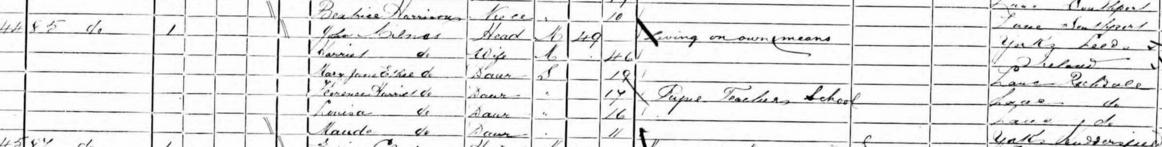 Beatrice Harrison Niece " 10 Lanc Southport
44 85 do 1 John Head M 49 Living on own means Yorks Leeds
Harriet do Wife M 46 Ireland
Mary Jane Ethel do Daur S 19 Lanc Rochdale
Florence Harriet do Daur " 17 Pupil Teacher School Lanc do
Louisa do Daur " 16 Lanc do
Maude do Daur " 11 Yorks Huddersfield